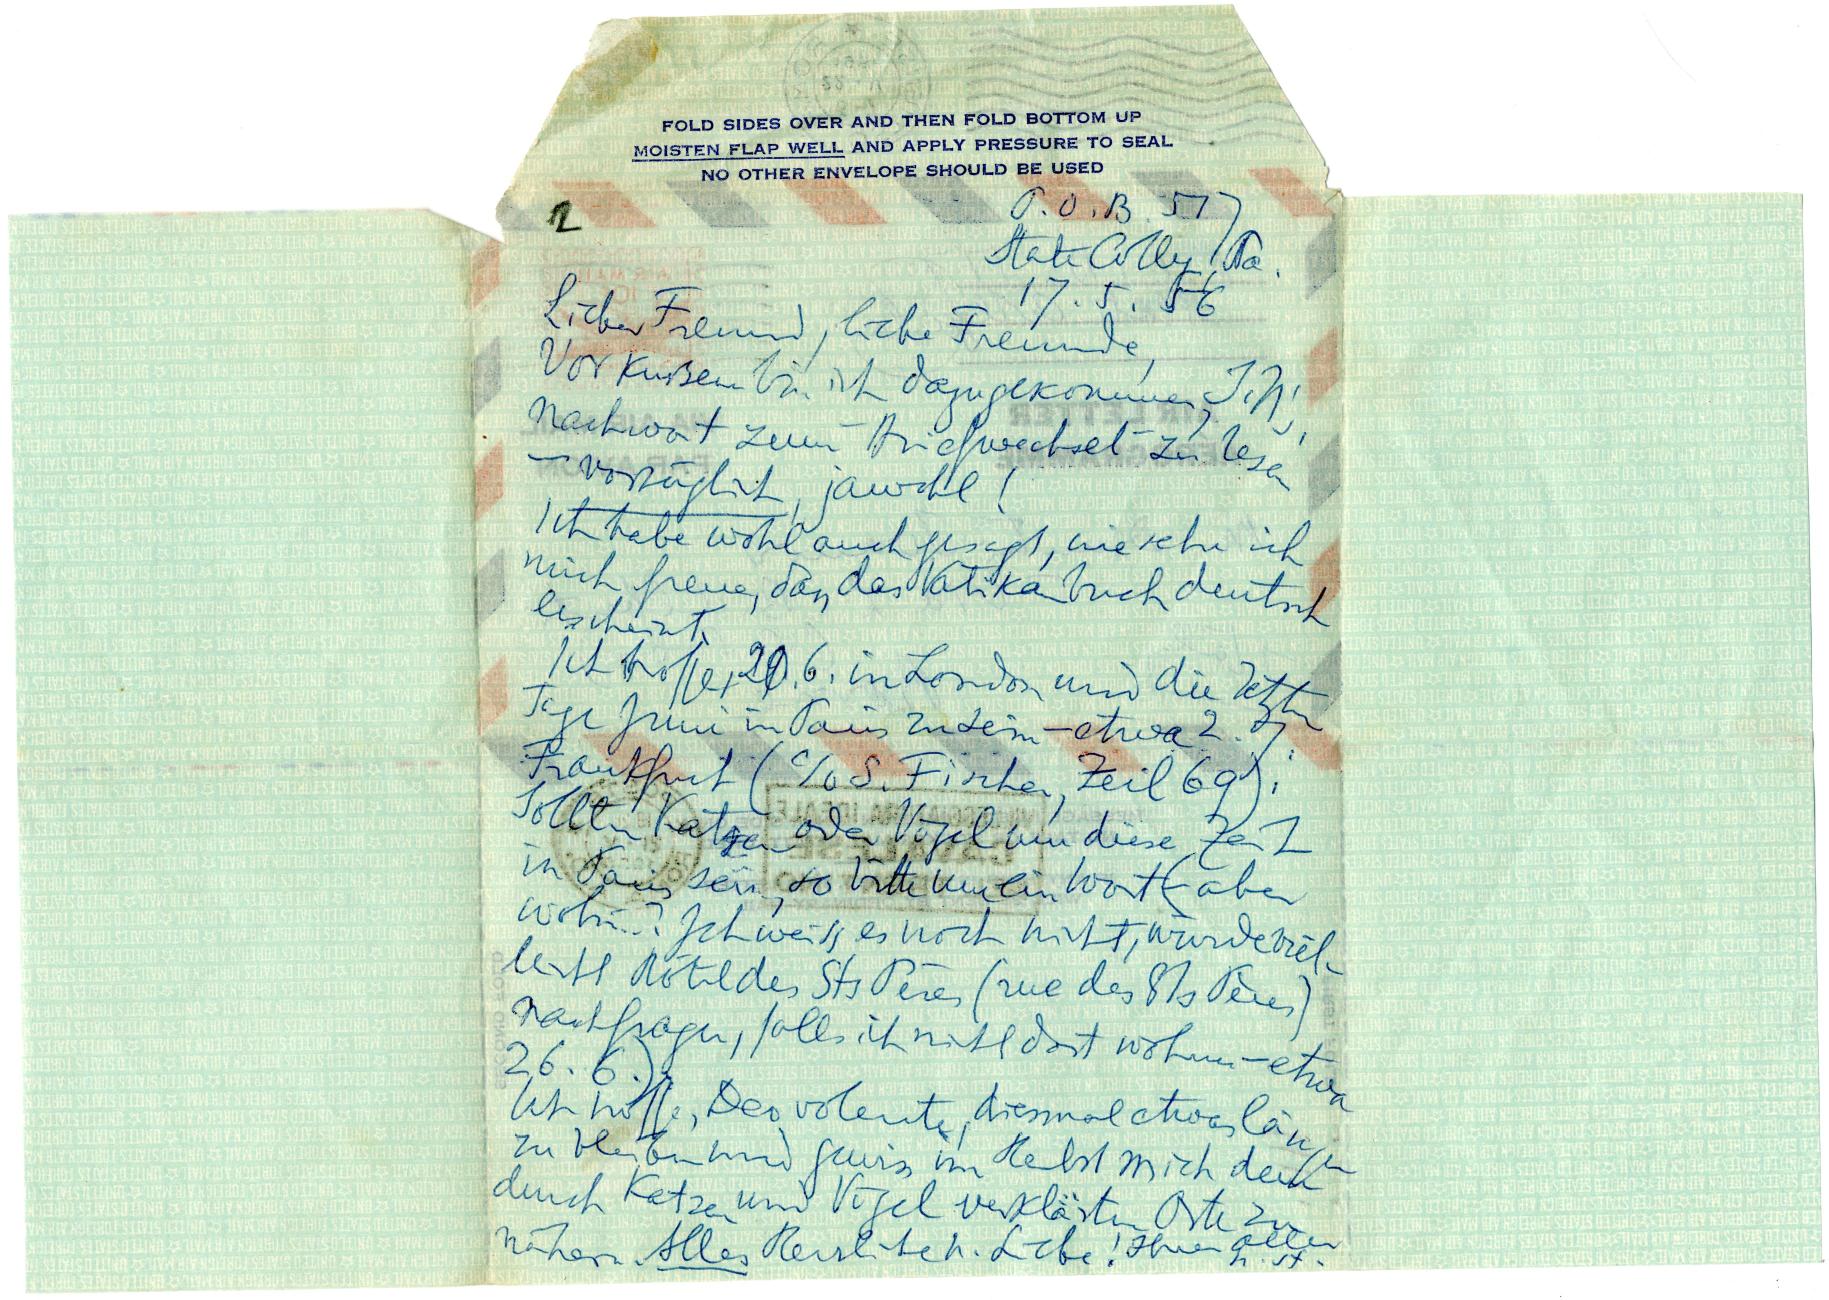 FOLD SIDES OVER AND THEN FOLD BOTTOM UP
MOISTEN FLAP WELL AND APPLY PRESSURE TO SEAL
NO OTHER ENVELOPE SHOULD BE USED
2
P.O.B. 517
State College, Pa.
17. 5. 56
Lieber Freund, liebe Freunde,
Vor Kurzem bin ich dazugekommen,
Nachwort zum Briefwechsel zu lesen
– vorzüglich, jawohl!
Ich habe wohl auch gesagt, wie sehr ich
mich freue, dass das Vatikanbuch deutsch
erscheint.
Ich hoffe, 20.6. in London und die letzten
Tage Juni in Paris zu sein – etwa 2. 7.
Frankfurt (c/o S. Fischer, Zeil 69);
Sollten Katzen oder Vögel um diese Zeit
in Paris sein, so bitte um ein Wort (aber
wohin? Ich weiss es noch nicht, würde viel-
leicht Hôtel des Sts Pères (rue des Sts Pères)
nachfragen, falls ich nicht dort wohne – etwa
26. 6.)
Ich hoffe, Deo volente, diesmal etwas länger
zu bleiben und gewiss im Herbst mich dem
durch Katzen und Vögel verklärten Orte zu
nähern. Alles Herzliche u. Liebe! Ihnen allen